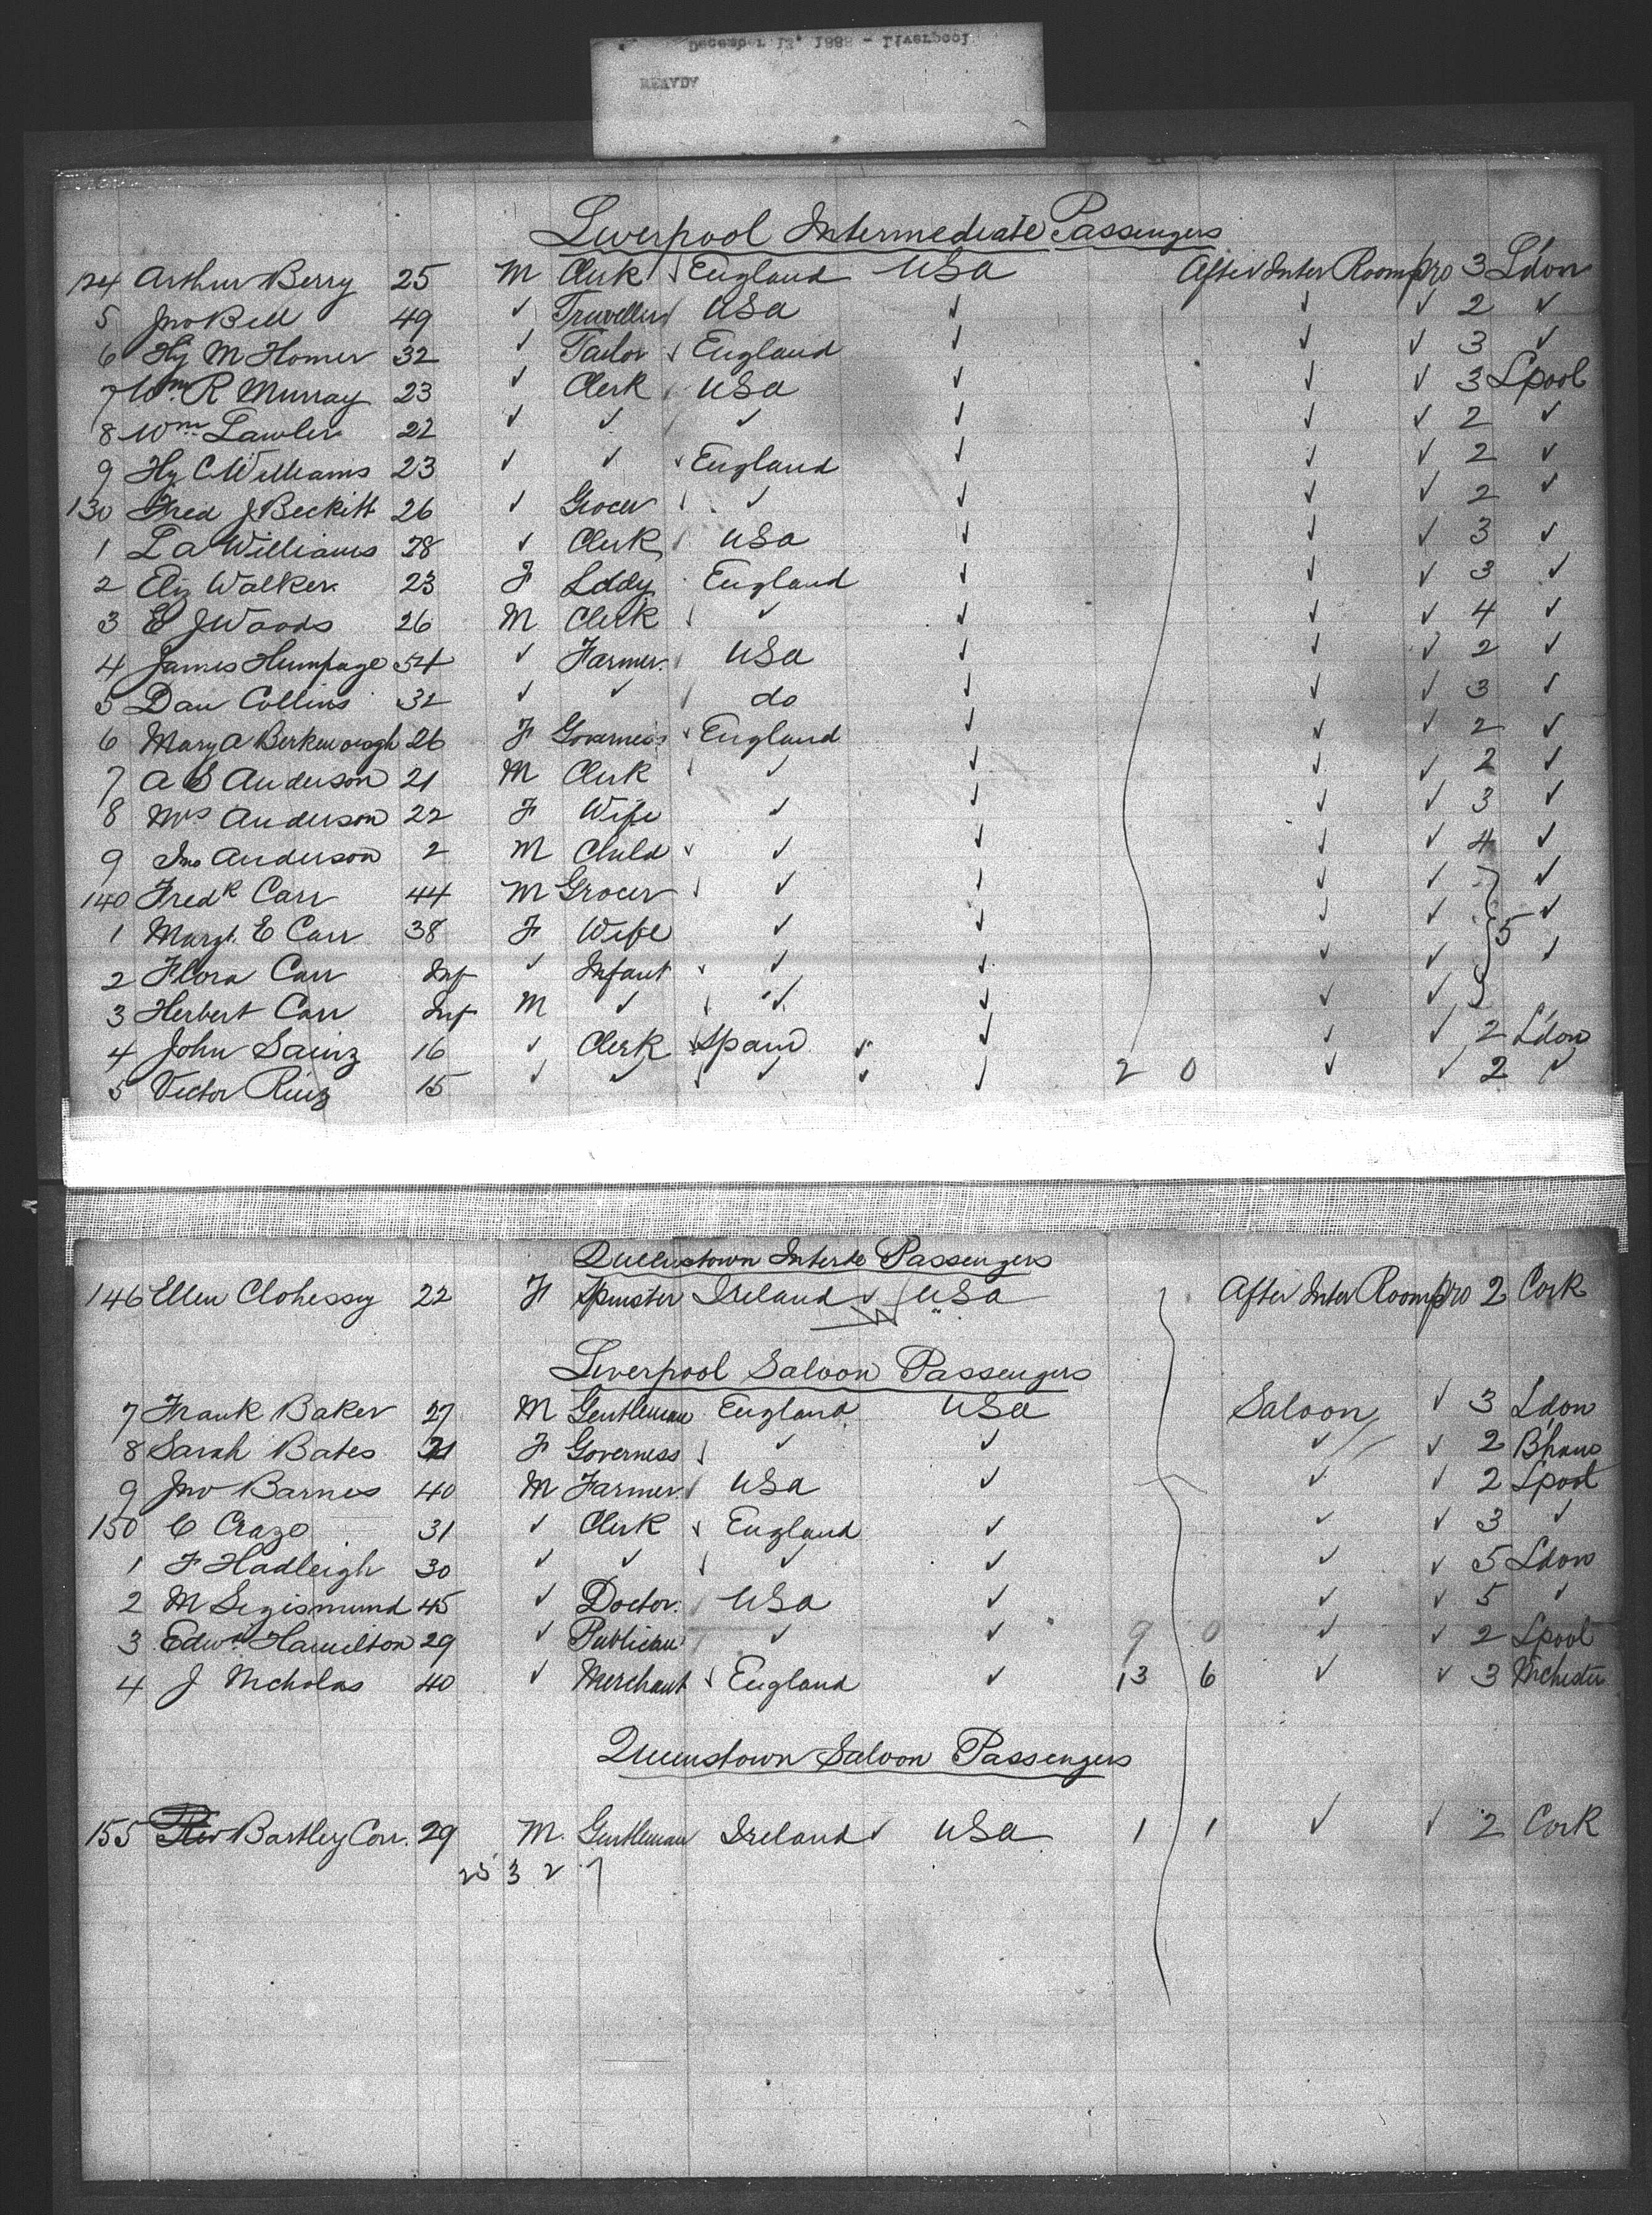 December 12, 1888 - Liverpool
Liverpool Intermediate Passengers
124 Arthur Berry 25 M Clerk ✓ England USa After Inter Room pro 3 Ldon
5 Jno Bell 49 ✓ Traveller USa ✓ ✓ ✓ 2 ✓
6 Hy M Homer 32 ✓ Tailor ✓ England ✓ ✓ ✓ 3 ✓
7 Wm R Murray 23 ✓ Clerk USa ✓ ✓ ✓ 3 Lpool
8 Wm Lawler 22 ✓ ✓ ✓ ✓ ✓ ✓ 2 ✓
9 Hy C Williams 23 ✓ ✓ ✓ England ✓ ✓ ✓ 2 ✓
130 Fred J Beckitt 26 ✓ Grocer ✓ ✓ ✓ ✓ 2 ✓
1 L a Williams 28 ✓ Clerk USa ✓ ✓ ✓ 3 ✓
2 Eliz Walker 23 F Lddy England ✓ ✓ ✓ 3 ✓
3 E J Woods 26 M Clerk ✓ ✓ ✓ ✓ 4 ✓
4 James Humpage 54 ✓ Farmer USa ✓ ✓ ✓ 2 ✓
5 Dan Collins 32 ✓ ✓ do ✓ ✓ ✓ 3 ✓
6 Mary A 26 F Governess ✓ England ✓ ✓ ✓ 2 ✓
7 A S Anderson 21 M Clerk ✓ ✓ ✓ ✓ 2 ✓
8 Mrs Anderson 22 F Wife ✓ ✓ ✓ ✓ 3 ✓
9 Jno Anderson 2 M Child ✓ ✓ ✓ ✓ ✓ 4 ✓
140 Fredk Carr 44 M Grocer ✓ ✓ ✓ ✓ ✓
1 Margt. E Carr 38 F Wife ✓ ✓ ✓ ✓ 5 ✓
2 Flora Carr Inf ✓ Infant ✓ ✓ ✓ ✓ ✓ ✓
3 Herbert Carr Inf M ✓ ✓ ✓ ✓ ✓
4 John Sainz 16 ✓ Clerk Spain ✓ ✓ ✓ ✓ 2 Ldon
5 Victor Ruiz 15 ✓ ✓ ✓ ✓ ✓ 2 0 ✓ ✓ 2 ✓
Queenstown Interde Passengers
146 Ellen Clohessy 22 F Spinster Ireland ✓ USa After Inter Room pro 2 Cork
Liverpool Saloon Passengers
7 Frank Baker 27 M Gentleman England USa Saloon ✓ 3 Ldon
8 Sarah Bates 21 F Governess ✓ ✓ ✓ ✓ 2 Bham
9 Jno Barnes 40 M Farmer USa ✓ ✓ ✓ 2 Lpool
150 C Craze 31 ✓ Clerk ✓ England ✓ ✓ ✓ 3 ✓
1 F Hadleigh 30 ✓ ✓ ✓ ✓ ✓ ✓ 5 Ldon
2 M Sigismund 45 ✓ Doctor USa ✓ ✓ ✓ 5 ✓
3 Edwd Hamilton 29 ✓ Publican ✓ ✓ 9 0 ✓ ✓ 2 Lpool
4 J Nicholas 40 ✓ Merchant ✓ England ✓ 13 6 ✓ ✓ 3 Mchester
Queenstown Saloon Passengers
155 Rev Bartley Corr. 29 M. Gentleman Ireland ✓ USa 1 1 ✓ ✓ 2 Cork
25 3 2 7